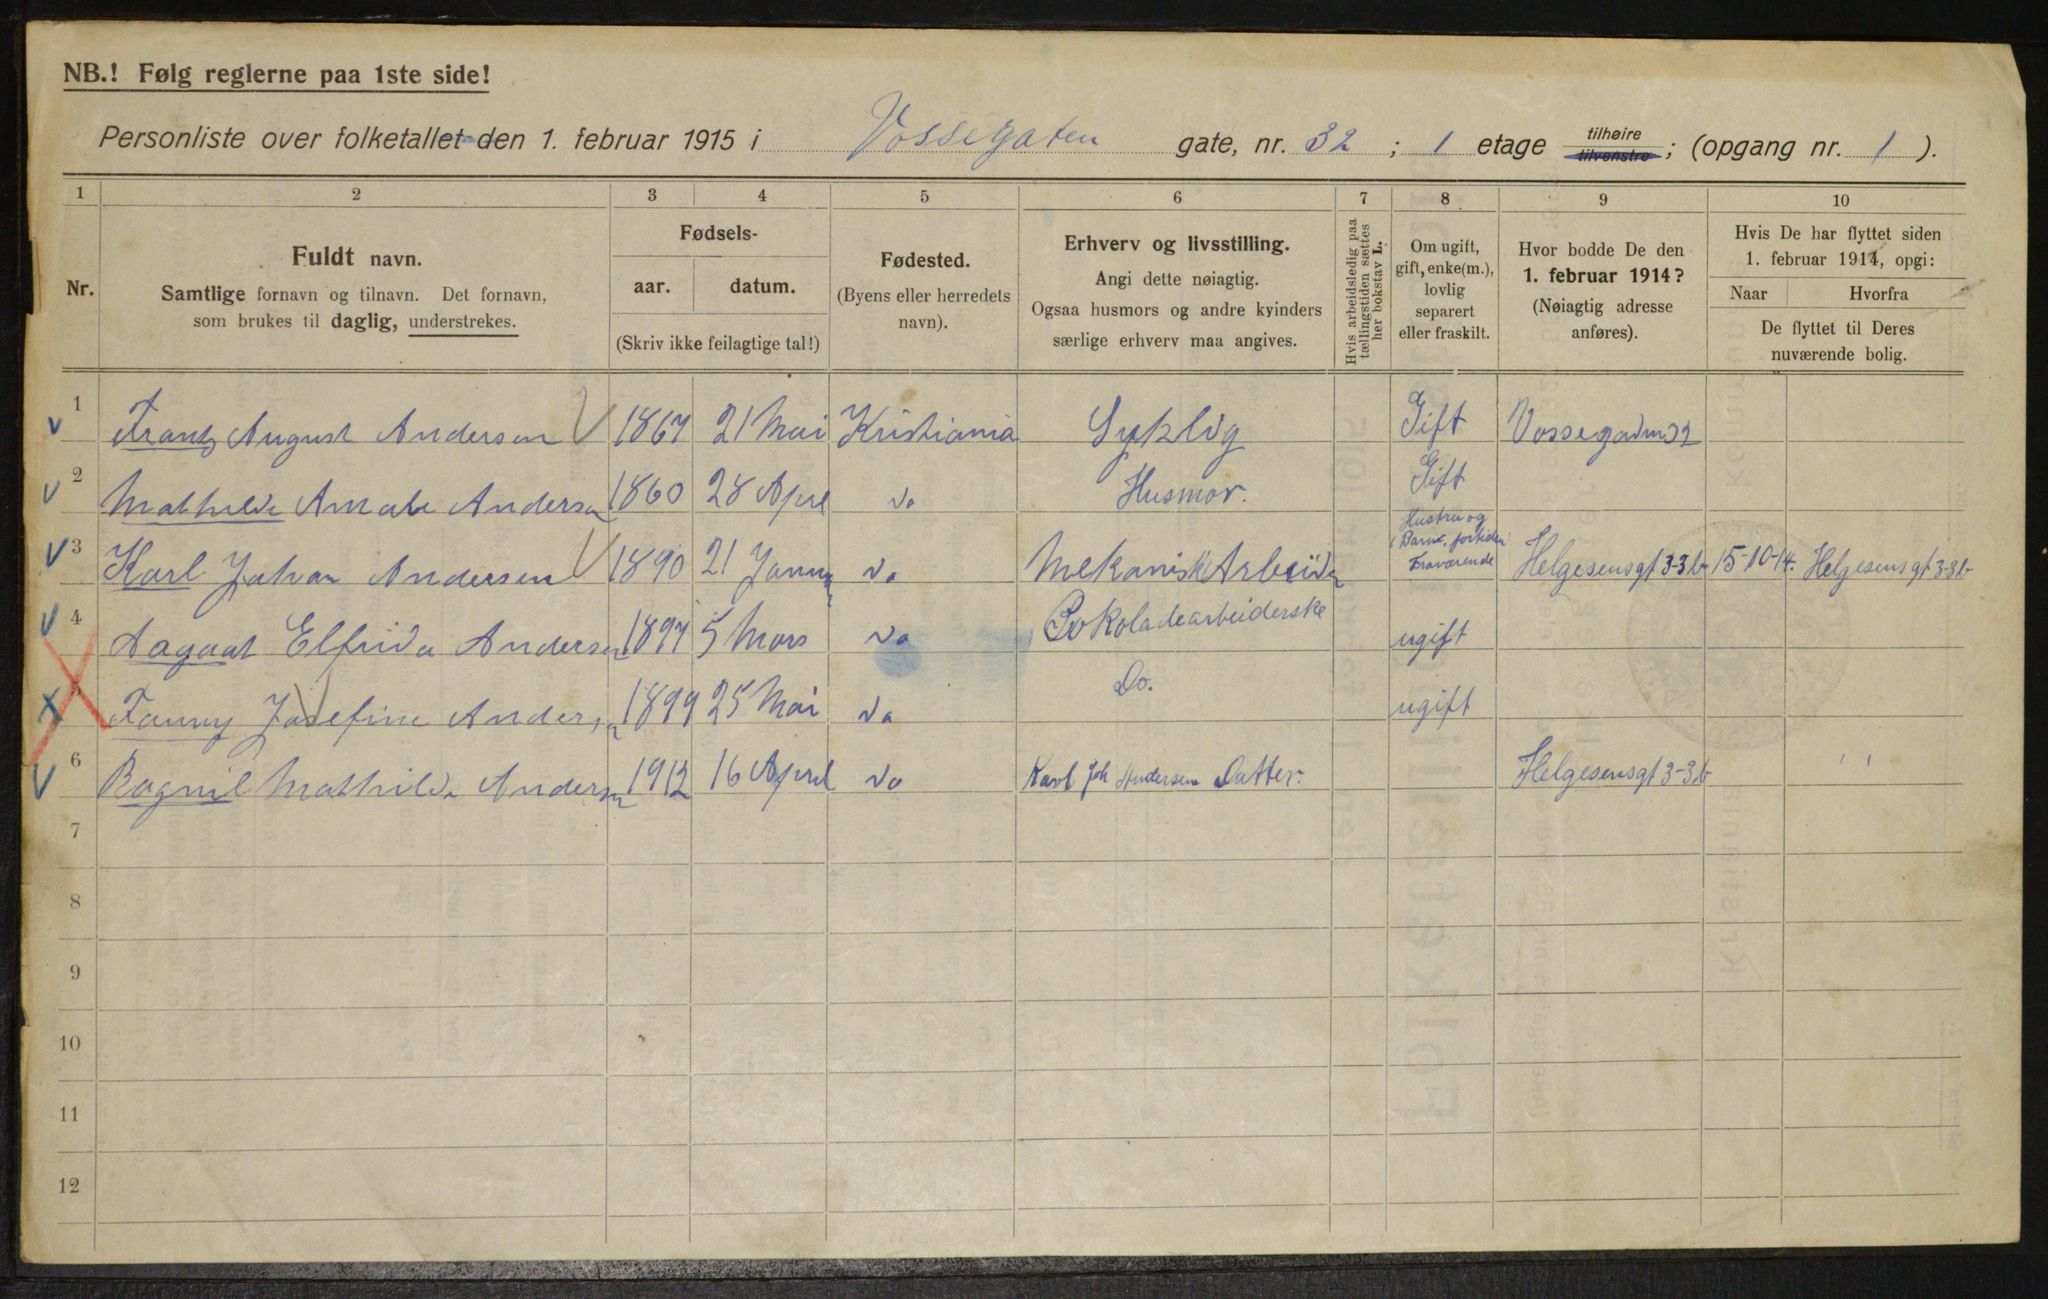 NB.! Følg reglerne paa 1ste side!
Personliste over folketallet den 1. februar 1915 i Vossegaten gate, nr. 32 ; 1 etage tilhøire tilvenstre ; (opgang nr. 1 ).
1 2 3 4 5 6 7 8 9 10
Nr.
Fuldt navn.
Samtlige fornavn og tilnavn. Det fornavn,
som brukes til daglig, understrekes.
Fødsels-
aar. datum.
(Skriv ikke feilagtige tal!)
Fødested.
(Byens eller herredets
navn).
Erhverv og livsstilling.
Angi dette nøiagtig.
Ogsaa husmors og andre kvinders
særlige erhverv maa angives.
Hvis arbeidsledig paa
tællingstiden sættes
her bokstav L.
Om ugift,
gift, enke(m.),
lovlig
separert
eller fraskilt.
Hvor bodde De den
1. februar 1914?
(Nøiagtig adresse
anføres).
Hvis De har flyttet siden
1. februar 1914, opgi:
Naar Hvorfra
De flyttet til Deres
nuværende bolig.
1 Frantz August Andersen 1867 21 Mai Kristiania Syklig Gift Vossegadn 32
2 Mathilde Amale Andersen 1860 28 Apul do Husmor. Gift
3 Karl Johan Andersen 1890 21 Januar do Mekanisk Arbeider Hustru og Barn, fortiden Fraværende Helgesensgt 3-3b 15-10-14. Helgesensgt 3-3b
4 Aagaat Elfrida Andersen 1897 5 Mars do Sjokoladearbeiderske ugift
5 Fanny Josefine Andersen 1899 25 Mai do Do. ugift
6 Ragnil Mathilde Andersen 1912 16 April do Karl Joh Andersens Datter. Helgesensgt 3-3b " "
7
8
9
10
11
12